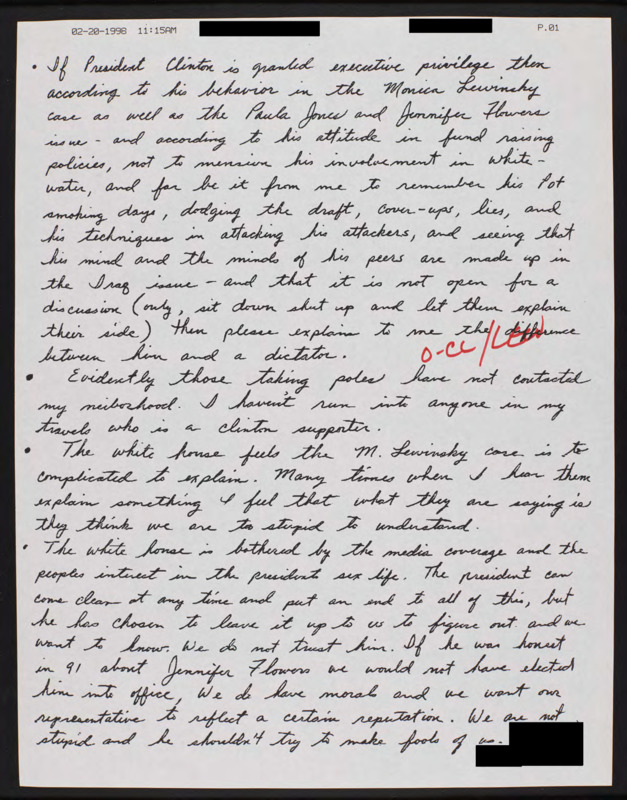 02-20-1998 11:15AM P.01
• If President Clinton is granted executive privilege then
according to his behavior in the Monica Lewinsky
case as well as the Paula Jones and Jennifer Flowers
issue - and according to his attitude in fund raising
policies, not to mension his involvement in White-
water, and far be it from me to remember his Pot
smoking days, dodging the draft, cover-ups, lies, and
his techniques in attacking his attackers, and seeing that
his mind and the minds of his peers are made up in
the Iraq issue - and that it is not open for a
discussion (only, sit down shut up and let them explain
their side) then please explain to me the difference
between him and a dictator. O-CL/LEW
• Evidently those taking poles have not contacted
my neiboshood. I haven't run into anyone in my
travels who is a clinton supporter.
• The white house feels the M. Lewinsky case is to
complicated to explain. Many times when I hear them
explain something I feel that what they are saying is
they think we are to stupid to understand.
• The white house is bothered by the media coverage and the
peoples interest in the presidents sex life. The president can
come clean at any time and put an end to all of this, but
he has chosen to leave it up to us to figure out and we
want to know. We do not trust him. If he was honest
in 91 about Jennifer Flowers we would not have elected
him into office, We do have morals and we want our
representative to reflect a certain reputation. We are not
stupid and he shouldn't try to make fools of us.